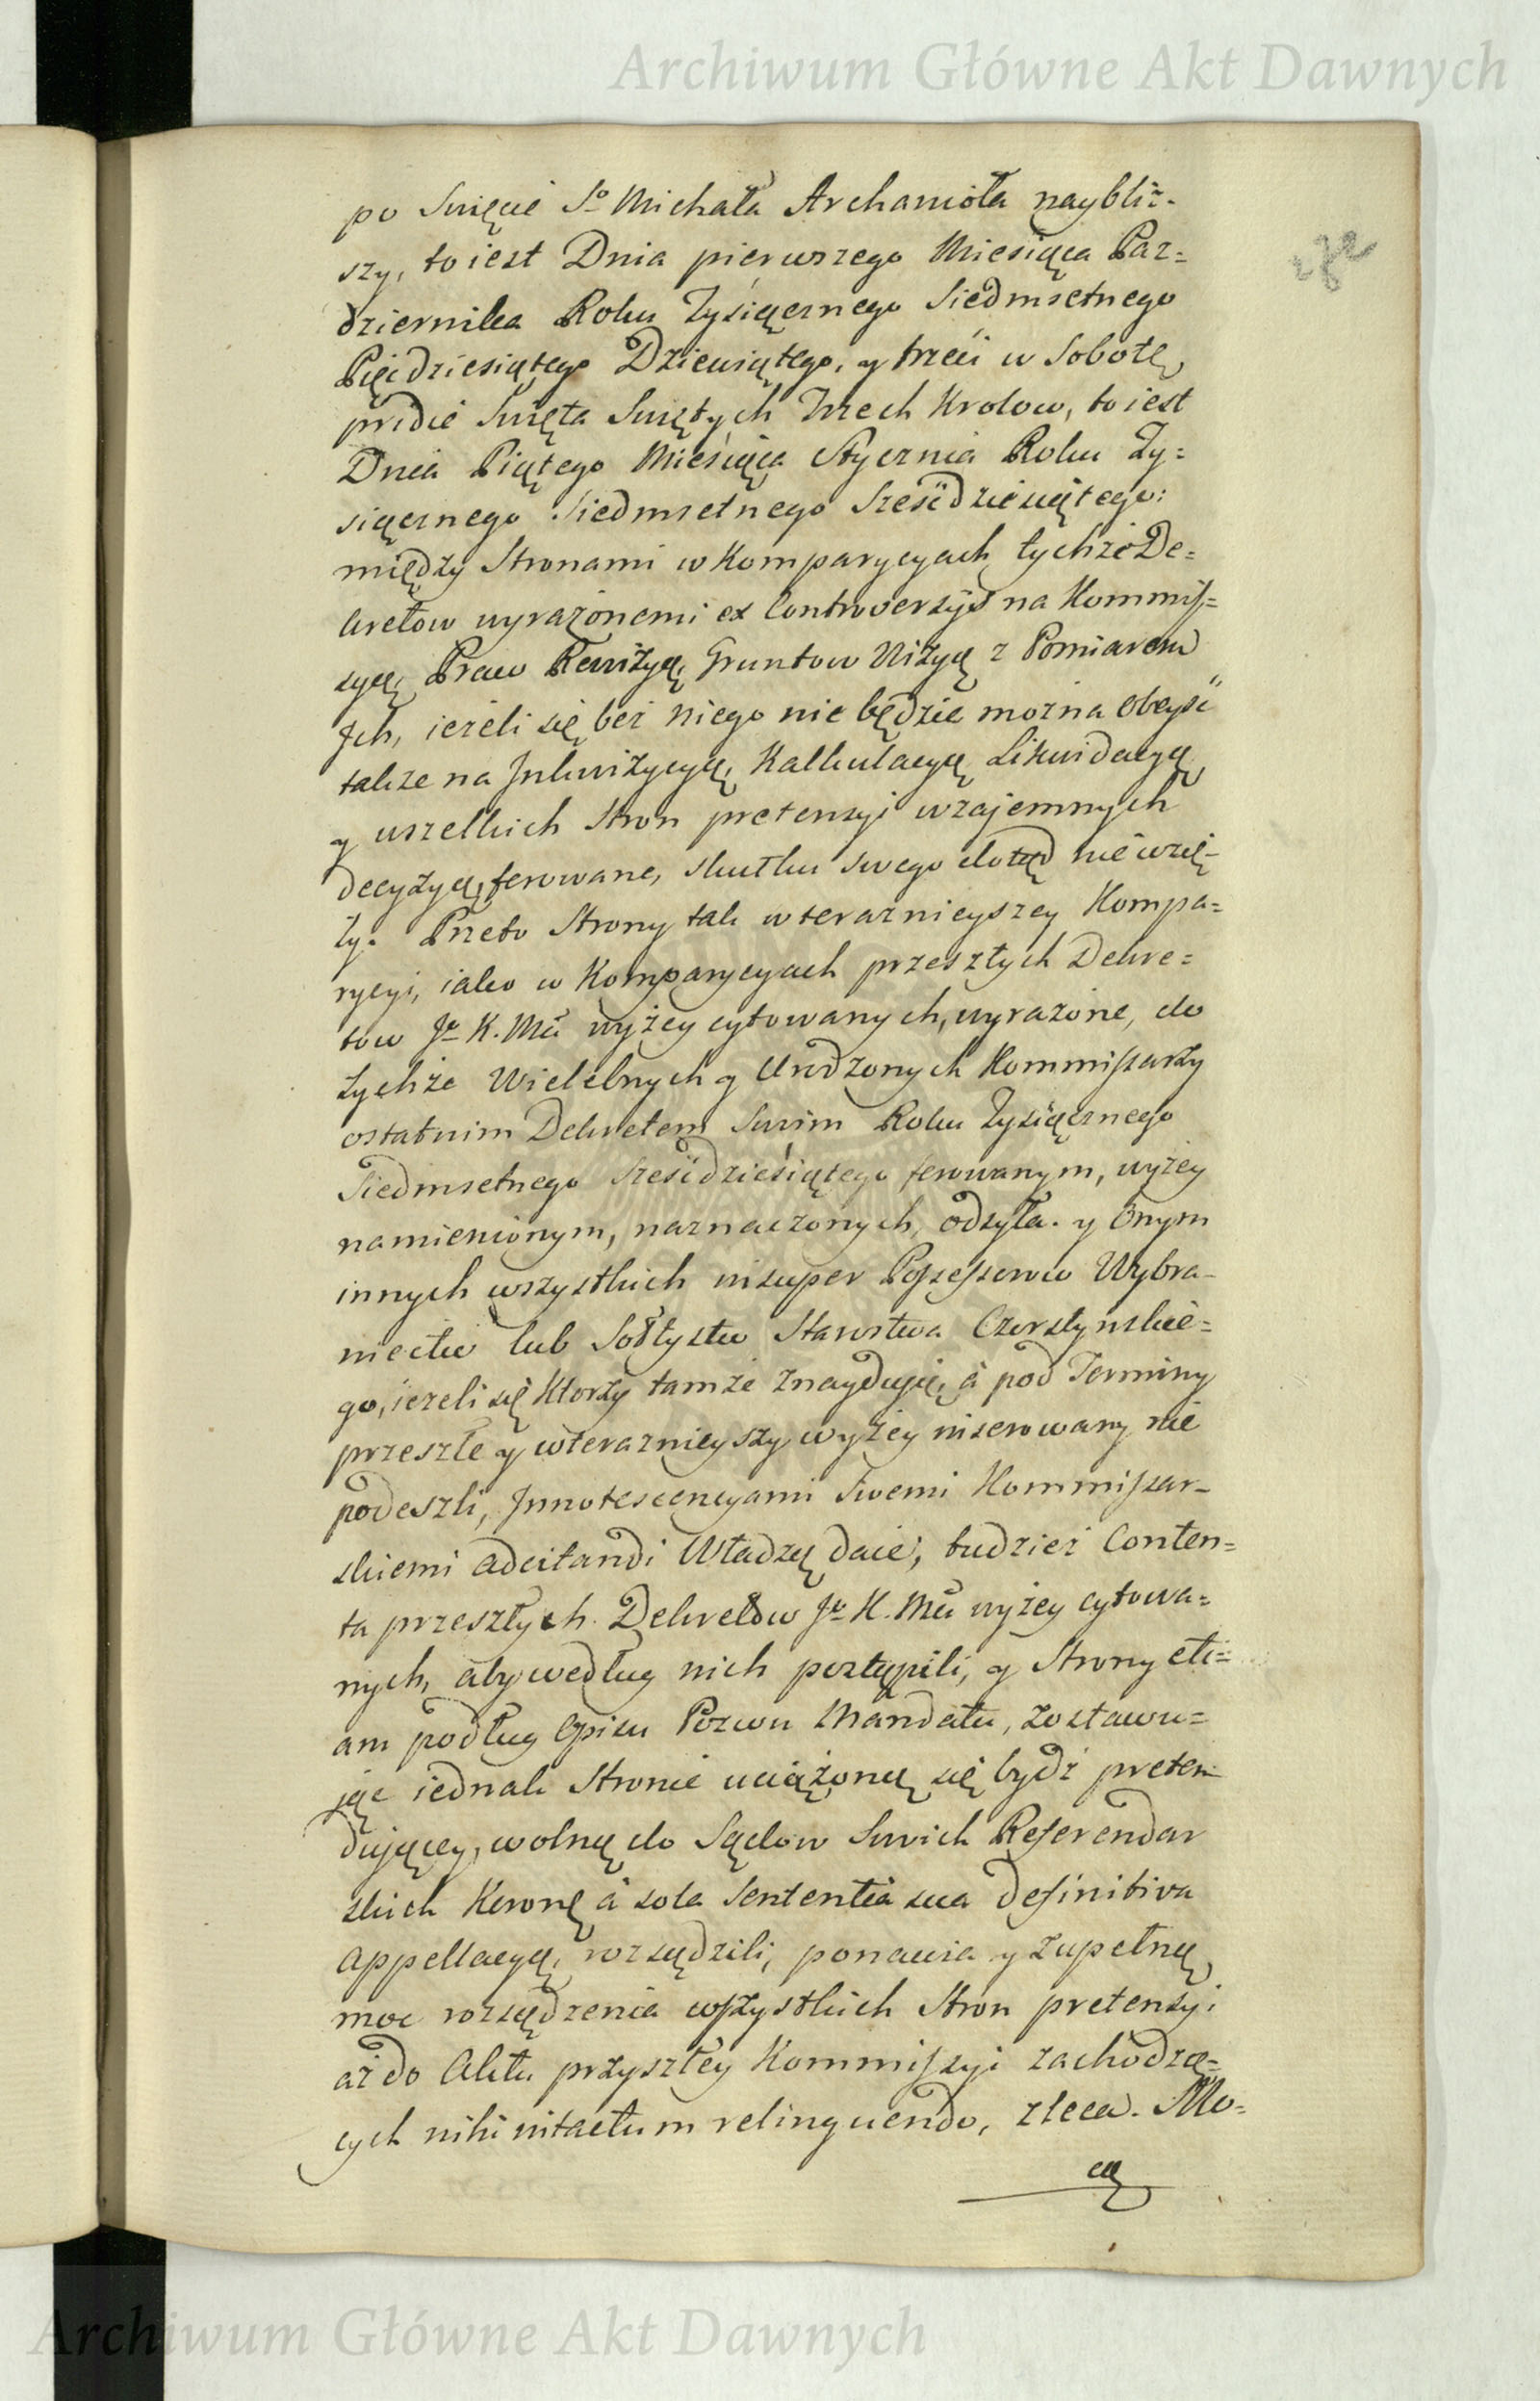 Archiwum Główne Akt Dawnych
po Swięcie So Michała Archanioła naybliż-
szy, to iest Dnia pierwszego Miesiąca Paz=
dziernika Roku Tysiącznego Siedmsetnego
Pięcdziesiątego Dziewiątego, y trzeci w Sobotę,
pridie Swięta Swiętych Trzech Krolow, to iest
Dnia Piątego Miesiąca Stycznia Roku Ty=
siącznego Siedmsetnego Szescdziesiątego:
między Stronami w Komparycyach tychże De=
kretow wyrażonemi ex Controversÿs na Kommis=
syą, Praw Rewizyą, Gruntow Wizyą z Pomiarem
Jch, ieżeli się bez niego nie będzie można obeyść
także na Jnkwizycyą, Kalkulacyą Likwidacyą,
y wszelkich Stron pretensyi wzajemnych
decyzyą, ferowane, skutku swego dotąd nie wzię-
ły. Przeto Strony tak w teraznieyszey Kompa=
rycyi, iako w Komparycyach przeszłych Dekre=
tow Jo K. Mci wyżey cytowanych, wyrażone, do
tychże Wielebnych y Urodzonych Kommissarzy
ostatnim Dekretem Swim Roku Tysiącznego
Siedmsetnego Szescdziesiątego ferowanym, wyżey
namienionym, naznaczonych, odsyła. y Onym
innych wszystkich insuper Possessorow Wybra-
niectw lub Sołtystw Starostwa Czorstynskie=
go, ieżeli się ktorzy tamże znayduią, a pod Terminy
przeszłe y w teraznieyszy wyżey inserowany nie
podeszli, Jnnotescencyami Swemi Kommissar-
skiemi adcitandi Władzą daie, tudzież Conten=
ta przeszłych Dekretow Jo K. Mci wyżey cytowa=
nych, aby według nich postąpili, y Strony eti=
am podług Opisu Pozwu Mandatu, zostawu=
jąc iednak Stronie uciążoną się bydź preten-
dującey, wolną do Sądow Swich Referendar
skich Koronę a sola Sententia sua definitiva
Appellacyą, rozsądzili, ponawia y zupełną
moc rozsądzenia wszystkich Stron pretensyi
aż do Aktu przyszłey Kommissyi zachodzą=
cych nihi intactum relinquendo, zleca. Mo=
cą
Archiwum Główne Akt Dawnych